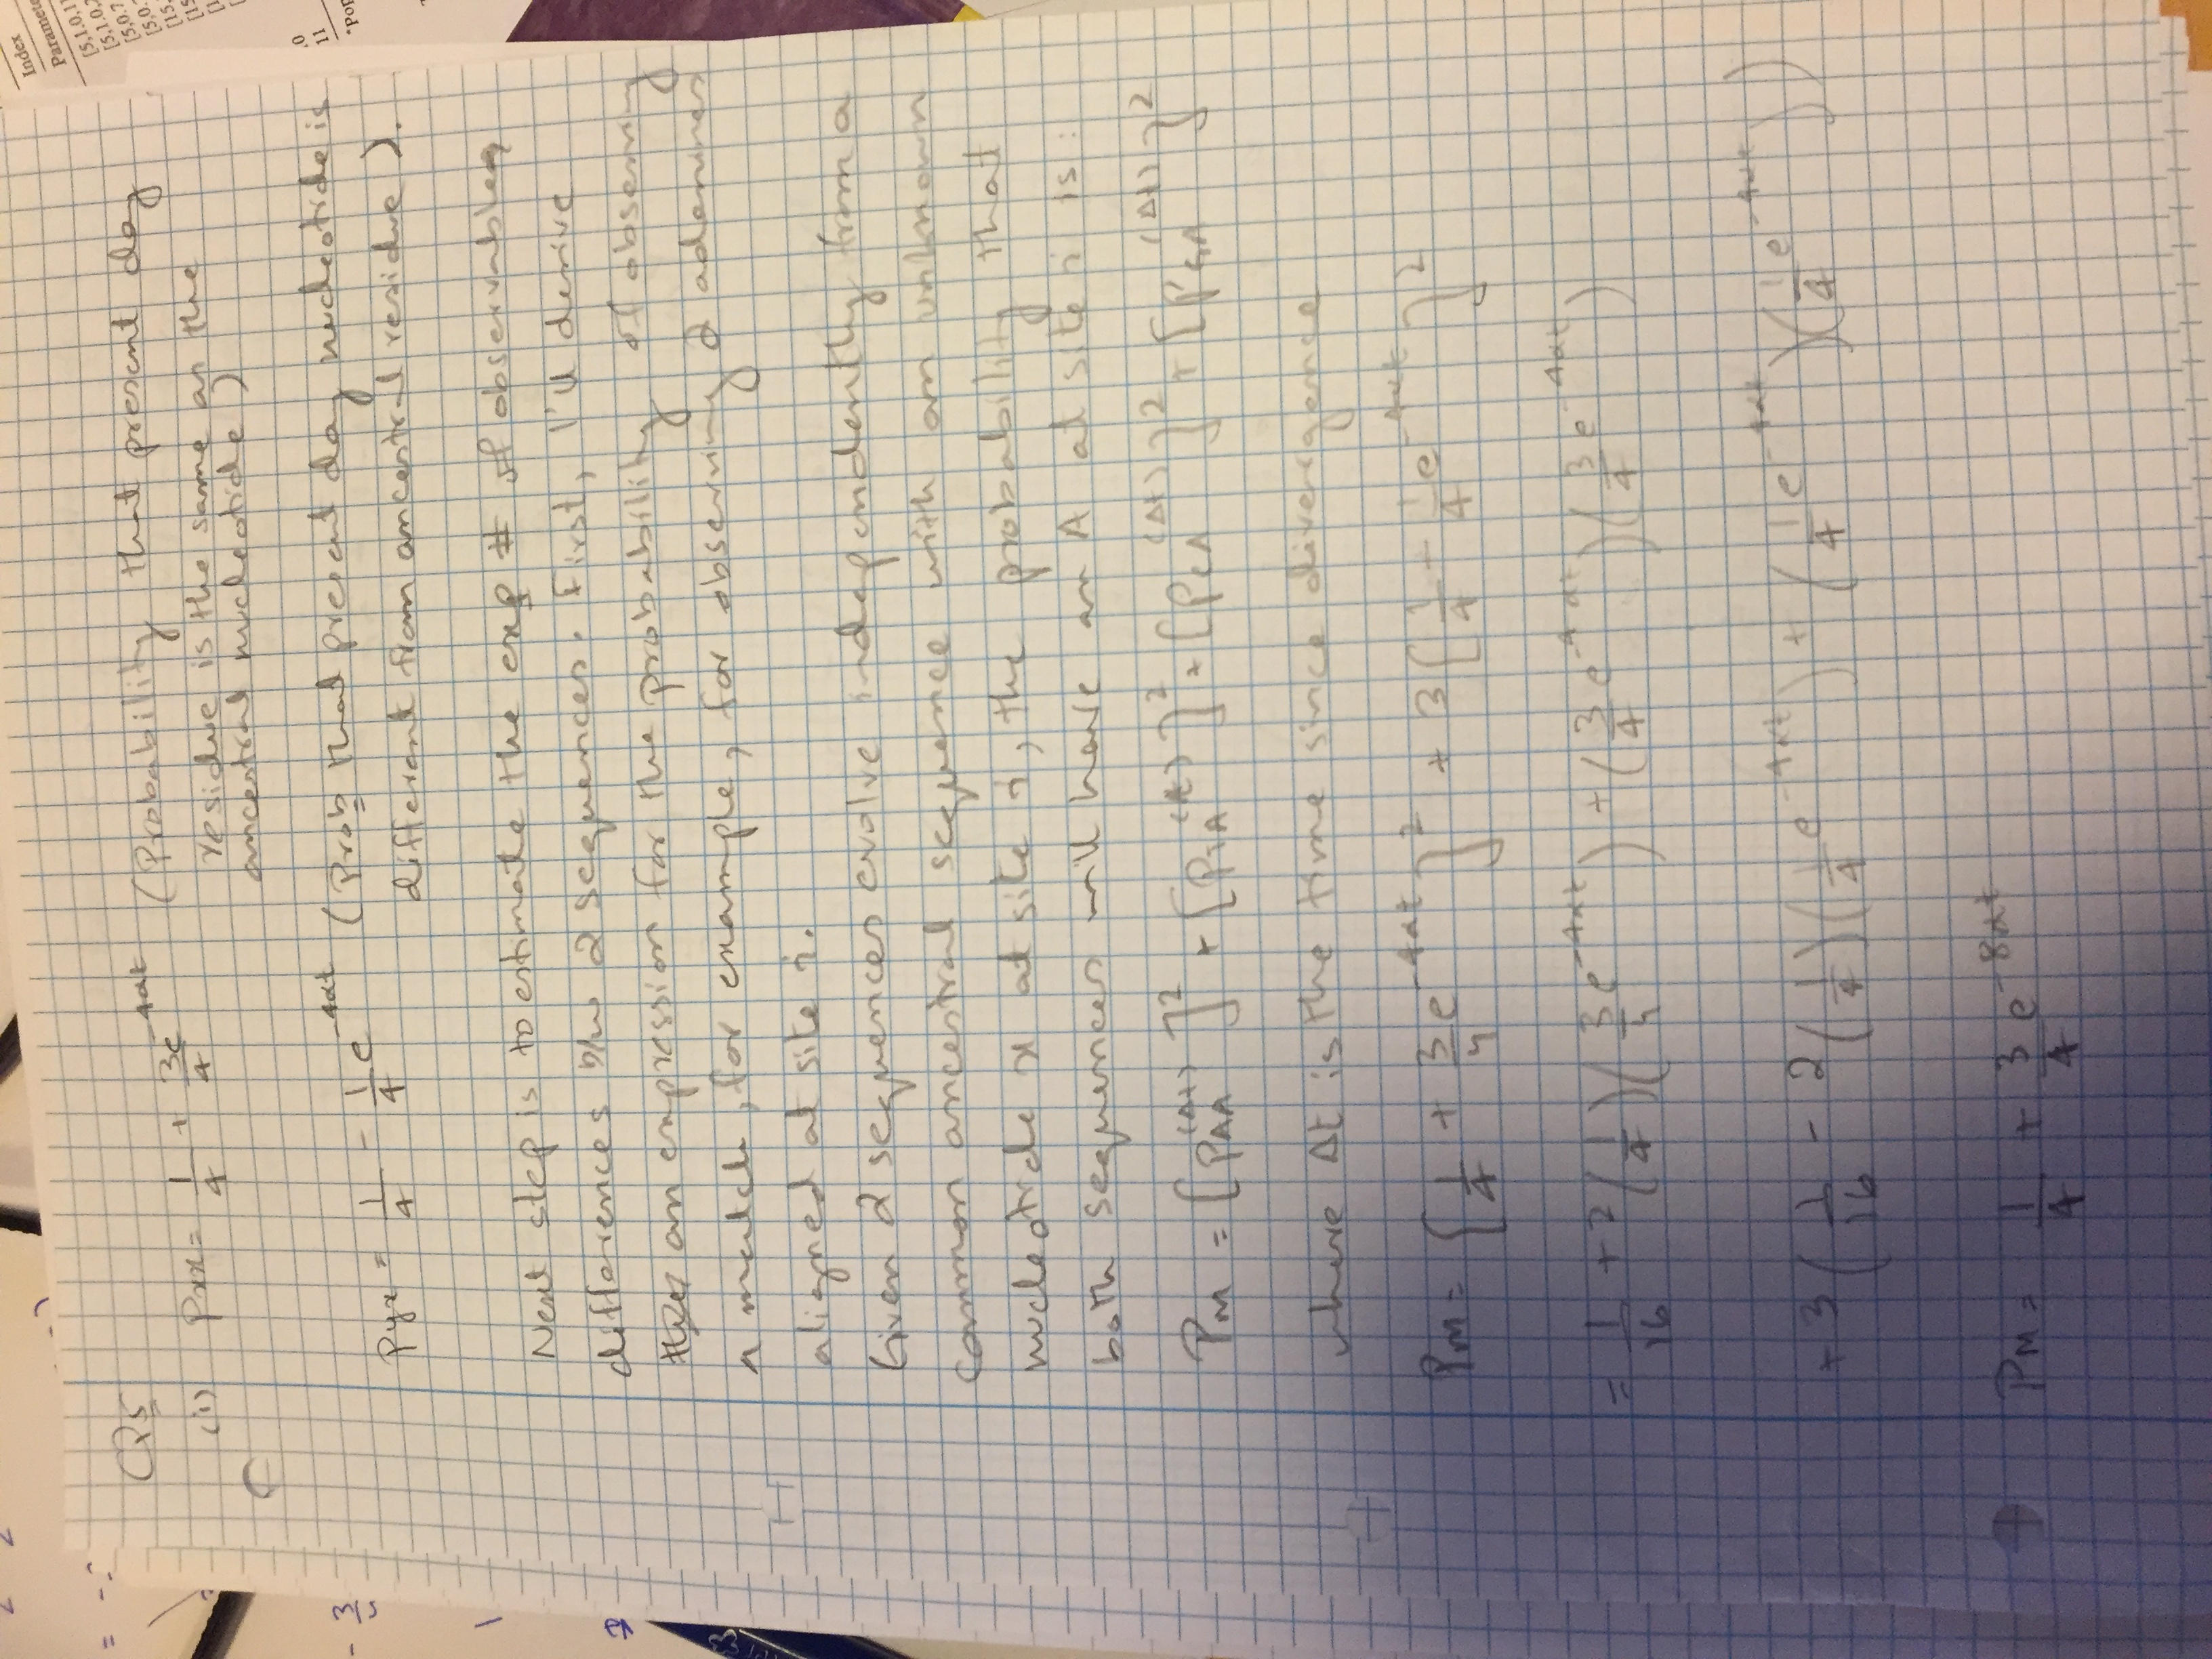 Q5
(i) Pxx = 1/4 + 3/4 e^-4αt (Probability that present day
residue is the same as the
ancestral nucleotide)
Pyx = 1/4 - 1/4 e^-4αt (Prob that present day nucleotide is
different from ancestral residue).
Next step is to estimate the exp # of observable
differences b/w 2 sequences. First, I'll derive
an expression for the probability of observing
a match, for example, for observing 2 adenines
aligned at site i.
Given 2 sequences evolve independently from a
common ancestral sequence with an unknown
nucleotide x at site i, the probability that
both sequences will have an A at site i is:
PM = [P_AA^(Δt)]^2 + [P_TA^(Δt)]^2 + [P_CA^(Δt)]^2 + [P_GA^(Δt)]^2
where Δt is the time since divergence
PM = [1/4 + 3/4 e^-4αt]^2 + 3[1/4 - 1/4 e^-4αt]^2
= 1/16 + 2(1/4)(3/4 e^-4αt) + (3/4 e^-4αt)(3/4 e^-4αt)
+ 3(1/16 - 2(1/4)(1/4 e^-4αt) + (1/4 e^-4αt)(1/4 e^-4αt))
PM = 1/4 + 3/4 e^-8αt
Index
[5,1.0,1
[5,1.0,
[5,0.7
[5,0.
[15,
[15
.0
11